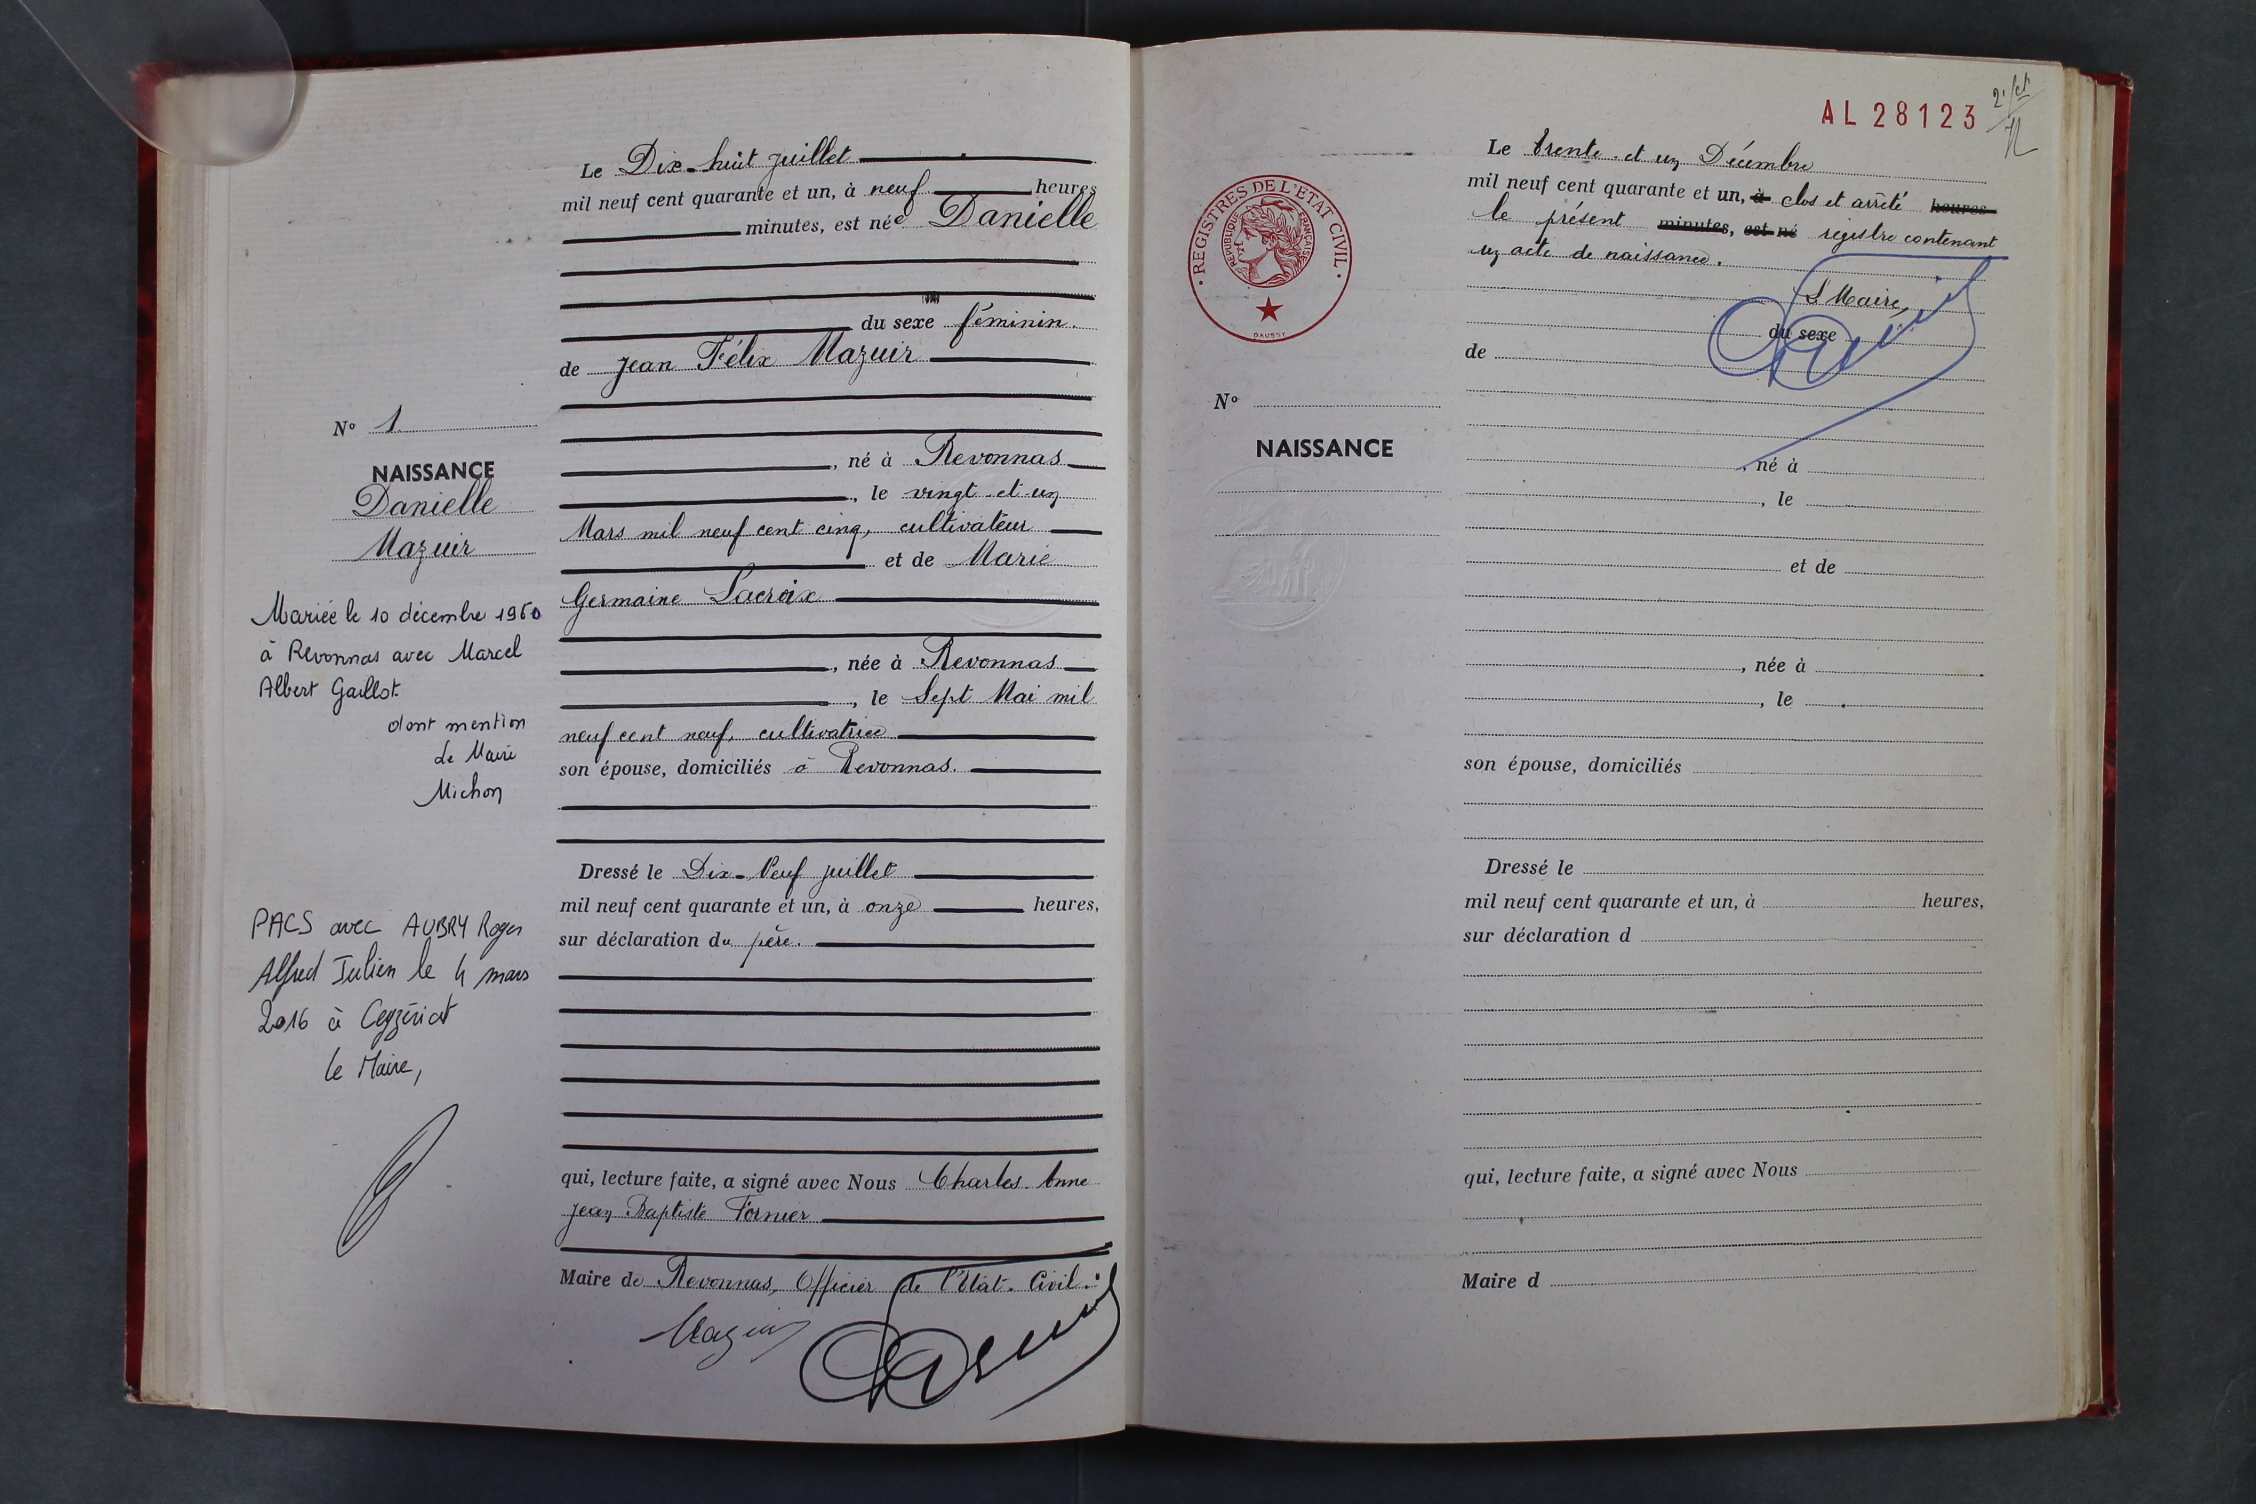 Le Dix-huit juillet
mil neuf cent quarante et un, à neuf heures
minutes, est née Danielle
du sexe féminin.
de Jean Félix Mazuir
, né à Revonnas
, le vingt et un
Mars mil neuf cent cinq, cultivateur
et de Marie
Germaine Lacroix
, née à Revonnas
, le Sept Mai mil
neuf cent neuf, cultivatrice
son épouse, domiciliés à Revonnas.
Dressé le Dix-Neuf juillet
mil neuf cent quarante et un, à onze heures,
sur déclaration du père.
qui, lecture faite, a signé avec Nous Charles Anne
Jean Baptiste Fornier
Maire de Revonnas, Officier de l'Etat-Civil.
Mazuir
N° 1
NAISSANCE
Danielle
Mazuir
Mariée le 10 décembre 1960
à Revonnas avec Marcel
Albert Gaillot
dont mention
Le Maire
Michon
PACS avec AUBRY Roger
Alfred Julien le 4 mars
2016 à Ceyzériat
Le Maire,
AL 28123
REGISTRES DE L'ETAT CIVIL
REPUBLIQUE FRANÇAISE
DAUSSY
N°
NAISSANCE
Le trente et un Décembre
mil neuf cent quarante et un, à clos et arrêté heures
le présent minutes, est né registre contenant
un acte de naissance.
Le Maire,
du sexe
de
, né à
, le
et de
, née à
, le
son épouse, domiciliés
Dressé le
mil neuf cent quarante et un, à heures,
sur déclaration d
qui, lecture faite, a signé avec Nous
Maire d